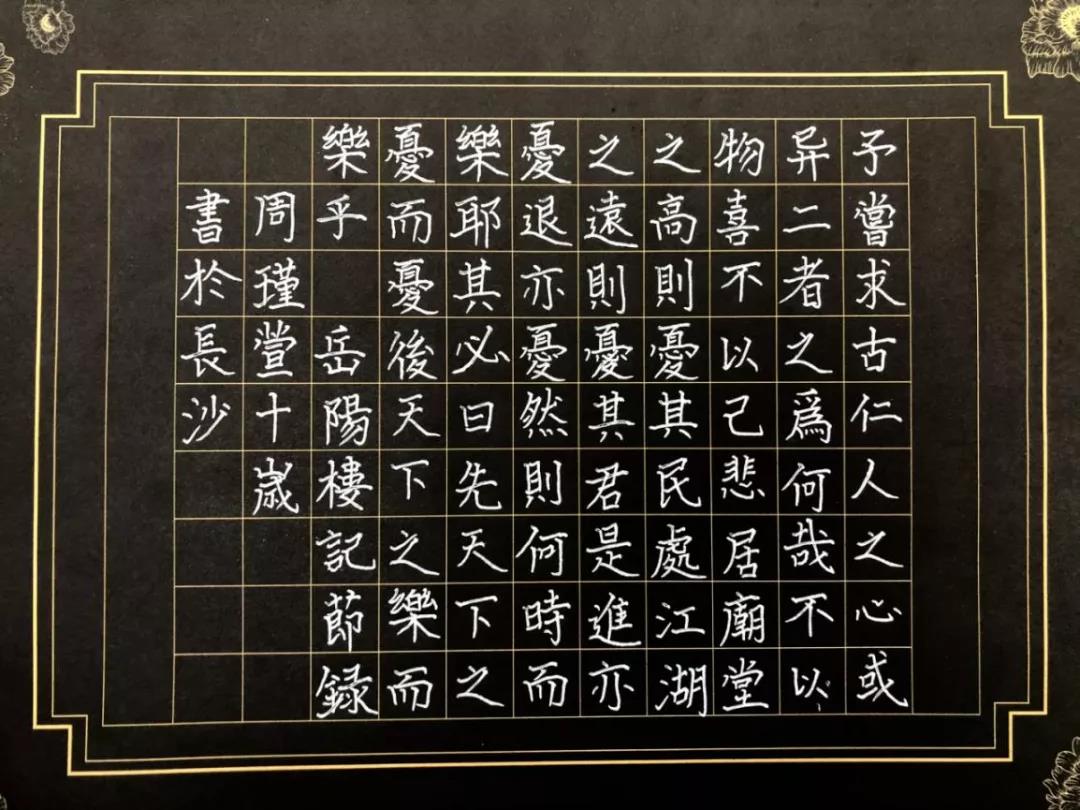 予嘗求古仁人之心或
异二者之爲何哉不以
物喜不以己悲居廟堂
之高則憂其民處江湖
之遠則憂其君是進亦
憂退亦憂然則何時而
樂耶其必曰先天下之
憂而憂後天下之樂而
樂乎 岳陽樓記節録
周瑾萱十歲
書於長沙